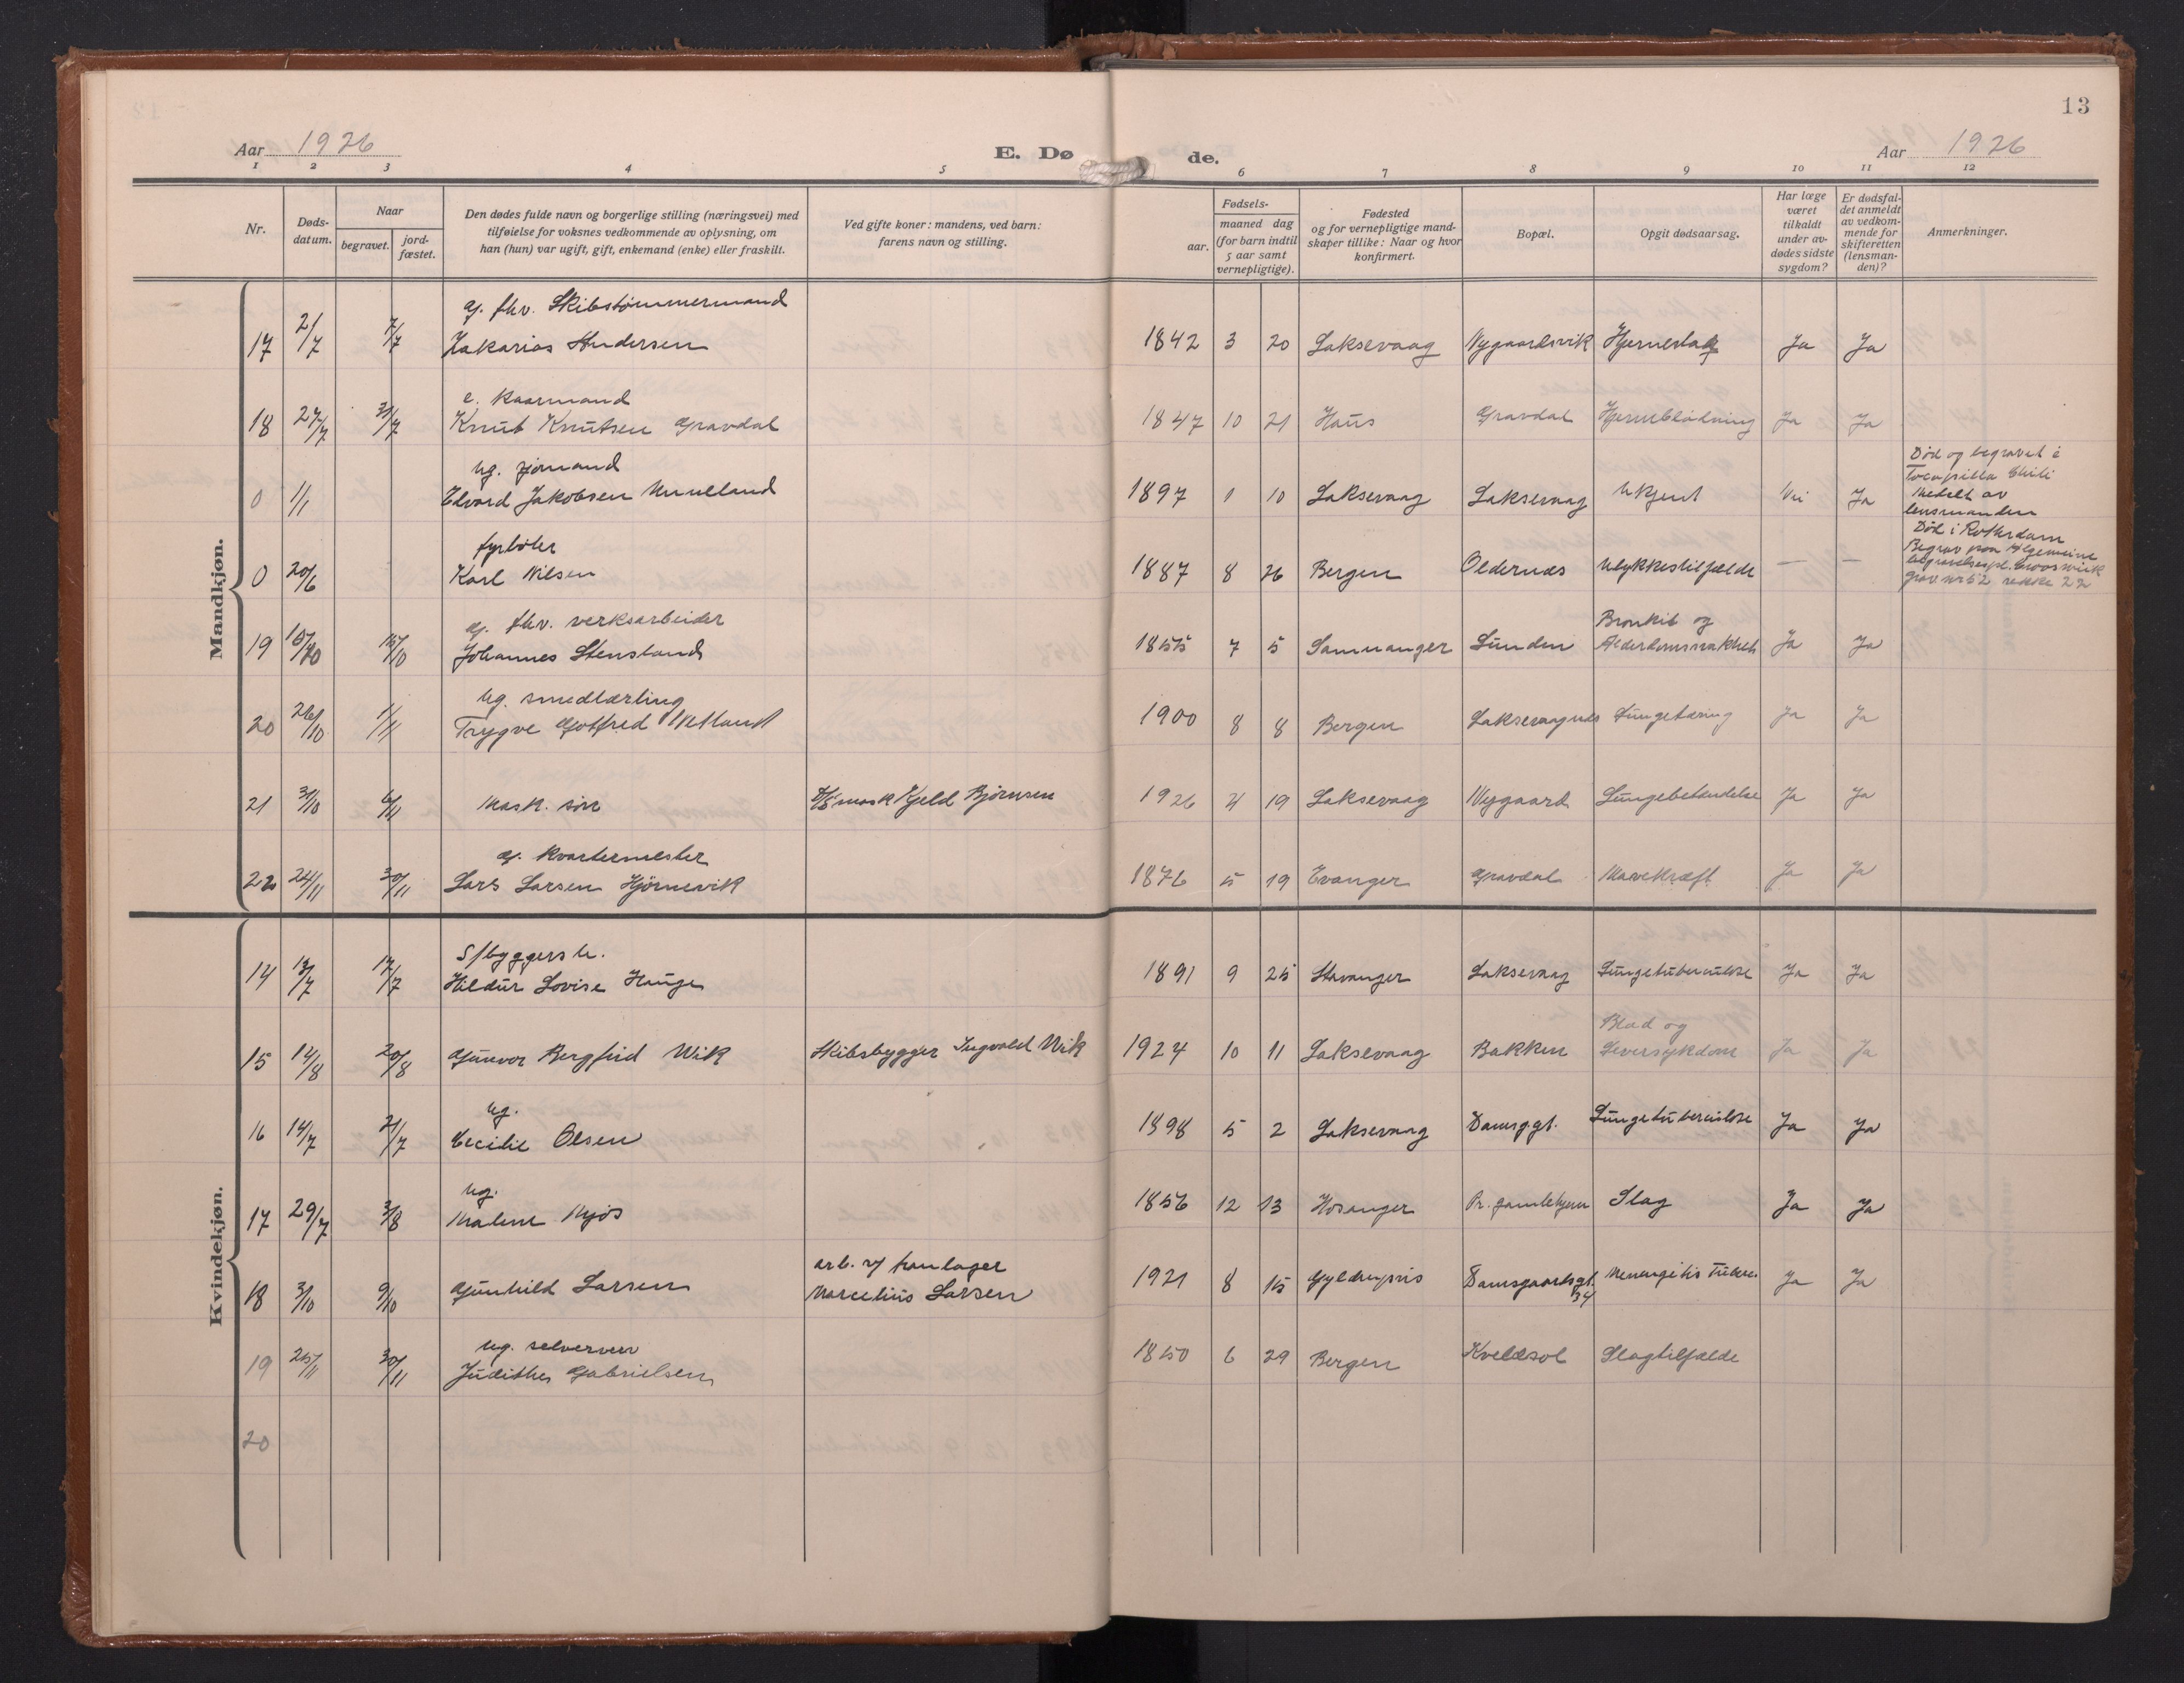 13
Aar 1926
E. Dø
de.
Aar 1926
1 2 3 4 5 6 7 8 9 10 11 12
Nr.
Døds-
datum.
Naar
begravet.
jord-
fæstet.
Den dødes fulde navn og borgerlige stilling (næringsvei) med
tilføielse for voksnes vedkommende av oplysning, om
han (hun) var ugift, gift, enkemand (enke) eller fraskilt.
Ved gifte koner: mandens, ved barn:
farens navn og stilling.
Fødsels-
aar.
maaned dag
(for barn indtil
5 aar samt
vernepligtige).
Fødested
og for vernepligtige mand-
skaper tillike: Naar og hvor
konfirmert.
Bopæl.
Opgit dødsaarsag.
Har læge
været
tilkaldt
under av-
dødes sidste
sygdom?
Er dødsfal-
det anmeldt
av vedkom-
mende for
skifteretten
(lensman-
den)?
Anmerkninger.
Mandkjøn.
g. fhv. Skibstømmermand
17 2/7 7/7 Zakarias Andersen 1842 3 20 Laksevaag Nygaardsvik Hjerneslag Ja Ja
e. kaarmand
18 27/7 31/7 Knut Knutsen Gravdal 1847 10 21 Haus Gravdal Hjerneblødning Ja Ja
ug. sjømand
0 1/1 Edvard Jakobsen 1897 1 10 Laksevaag Laksevaag Ukjent Nei Ja
Død og begravet i
Tocopilla Chili
Medelt av
lensmanden
fyrbøter
0 20/6 Karl Nilsen 1887 8 26 Bergen Oldernes Ulykkestilfælde — —
Død i Rotterdam
Begrav paa Algemeine
begravelsespl. Crooswiik
grav nr 52 rekke 22
g. fhv. verksarbeider
19 10/10 15/10 Johannes Stensland 1855 7 5 Samnanger Lunden Bronkit og
Alderdomssvakhet Ja Ja
ug. smedlærling
20 26/10 1/11 Trygve Gotfred 1900 8 8 Bergen Laksevaagnes Lungetæring Ja Ja
21 31/10 6/11 Mask. søn Kjeld Bjørnsen 1926 4 19 Laksevaag Nygaard Lungebetændelse Ja Ja
g. kvartermester
22 24/11 30/11 Lars Larsen Hjørnevik 1876 5 19 Evanger Gravdal Mavekræft Ja Ja
Kvindekjøn.
S/byggers h.
14 13/7 17/7 Hildur Lovise Hauge 1891 9 25 Stavanger Laksevaag Lungetuberculose Ja Ja
15 14/8 20/8 Gunvor Bergfrid Wik Skibsbygger Ingvald Wik 1924 10 11 Laksevaag Bakken Blod og
Leversykdom Ja Ja
ug.
16 14/7 21/7 Cecilie Olsen 1898 5 2 Laksevaag Damsggt. Lungetuberculose Ja Ja
ug.
17 29/7 3/8 Malene Myjos 1856 12 13 Hosanger Pr. gamlehjem Slag Ja Ja
18 3/10 9/10 Gunhild Larsen arb. v/ tranlager
Marcelius Larsen 1921 8 15 Gyldenpris Damsgaardsgt.
34 Menengitis Tuberc. Ja Ja
ug. selververv
19 25/11 30/11 Judithe Gabrielsen 1850 6 29 Bergen Kveldsol Slagtilfælde
20